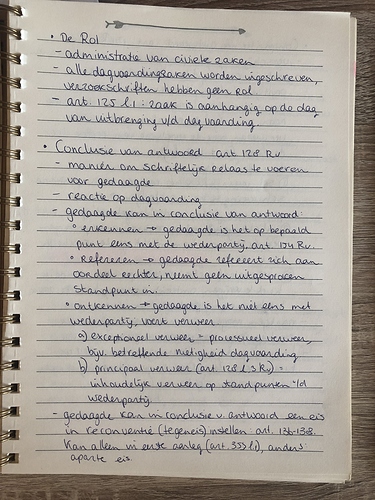 • De Rol
- administratie van civiele zaken
- alle dagvaardingszaken worden ingeschreven,
verzoekschriften hebben geen rol
- art. 125 l 1: zaak is aanhangig op de dag
van uitbrenging v/d dagvaarding
• Conclusie van antwoord art 128 Rv
- manier om schriftelijk relaas te voeren
voor gedaagde
- reactie op dagvaarding
- gedaagde kan in conclusie van antwoord:
° erkennen → gedaagde is het op bepaald
punt eens met de wederpartij, art. 154 Rv.
° Refereren → gedaagde refereert zich aan
oordeel rechter, neemt geen uitgesproken
standpunt in.
° ontkennen → gedaagde is het niet eens met
wederpartij, voert verweer
a) exceptioneel verweer = processueel verweer,
bijv. betreffende nietigheid dagvaarding
b) principaal verweer (art. 128 l 3 Rv) =
inhoudelijk verweer op standpunten v/d
wederpartij.
- gedaagde kan in conclusie v. antwoord een eis
in reconventie (tegeneis) instellen art. 136-138.
Kan alleen in eerste aanleg (art. 353 l 1), anders
aparte eis